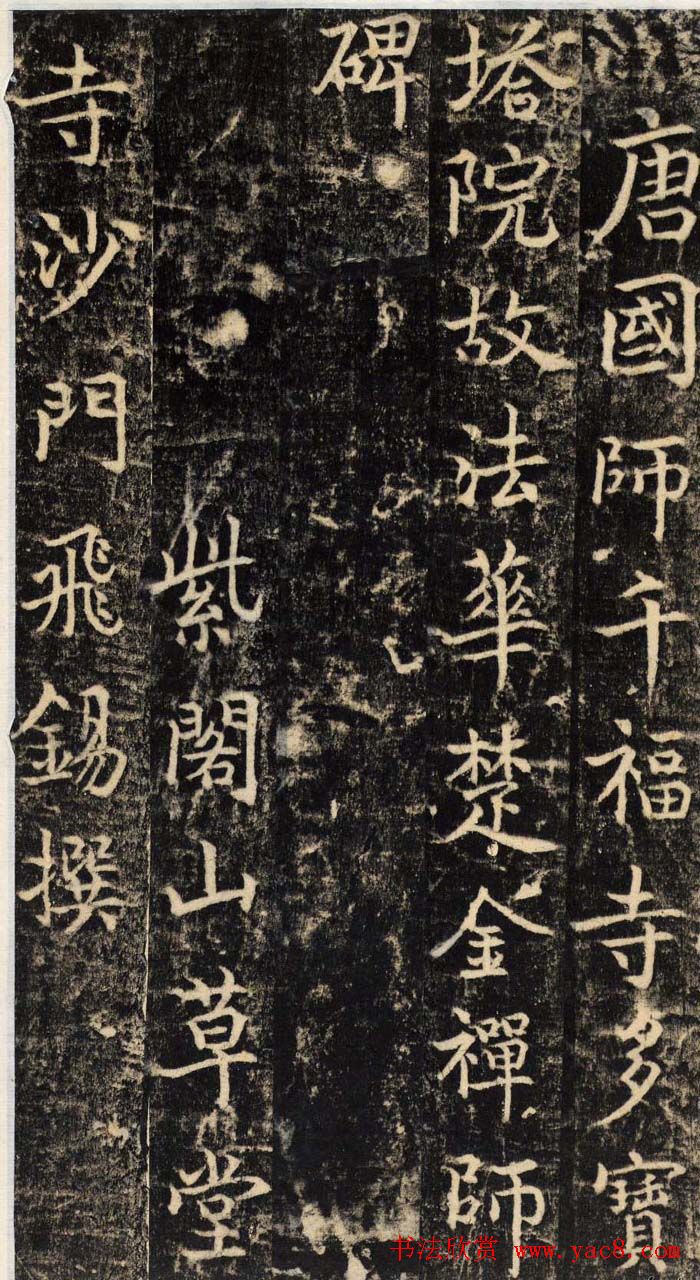 唐國師千福寺多寶
塔院故法華楚金禪師
碑
紫閣山草堂
寺沙門飛錫撰
书法欣赏 www.yac8.com